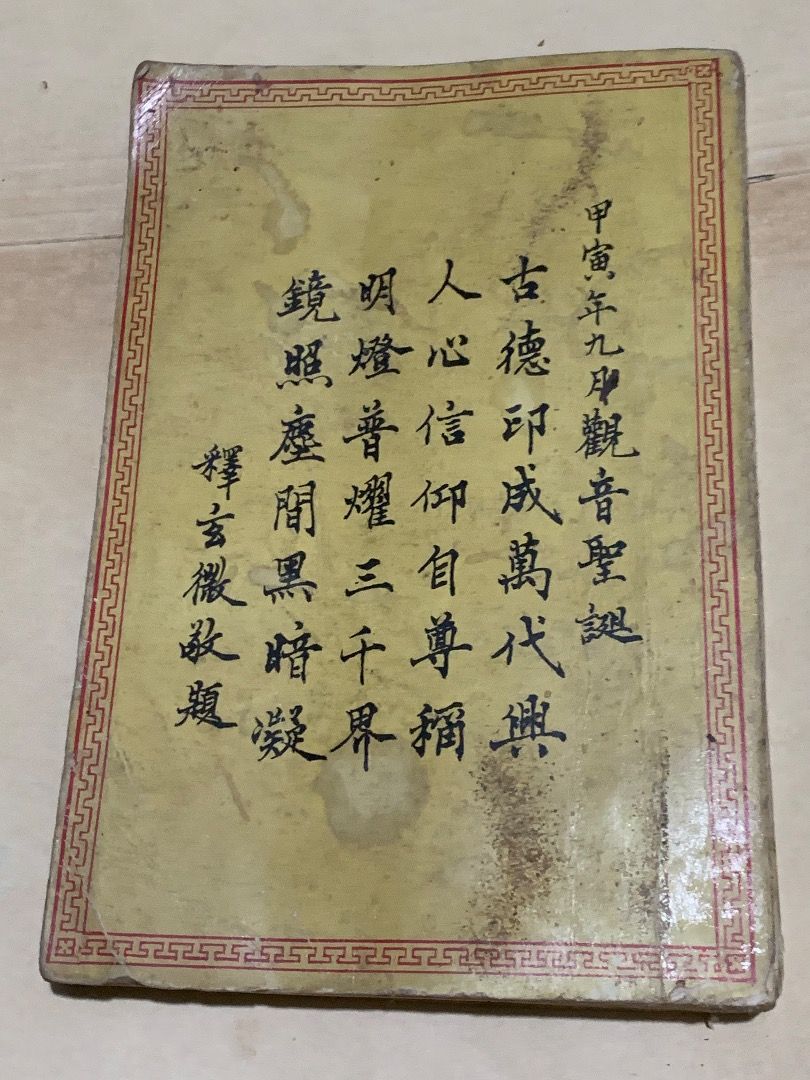 甲寅年九月觀音聖誕
古德印成萬代興
人心信仰自尊稱
明燈普耀三千界
鏡照塵間黑暗凝
釋玄微敬題